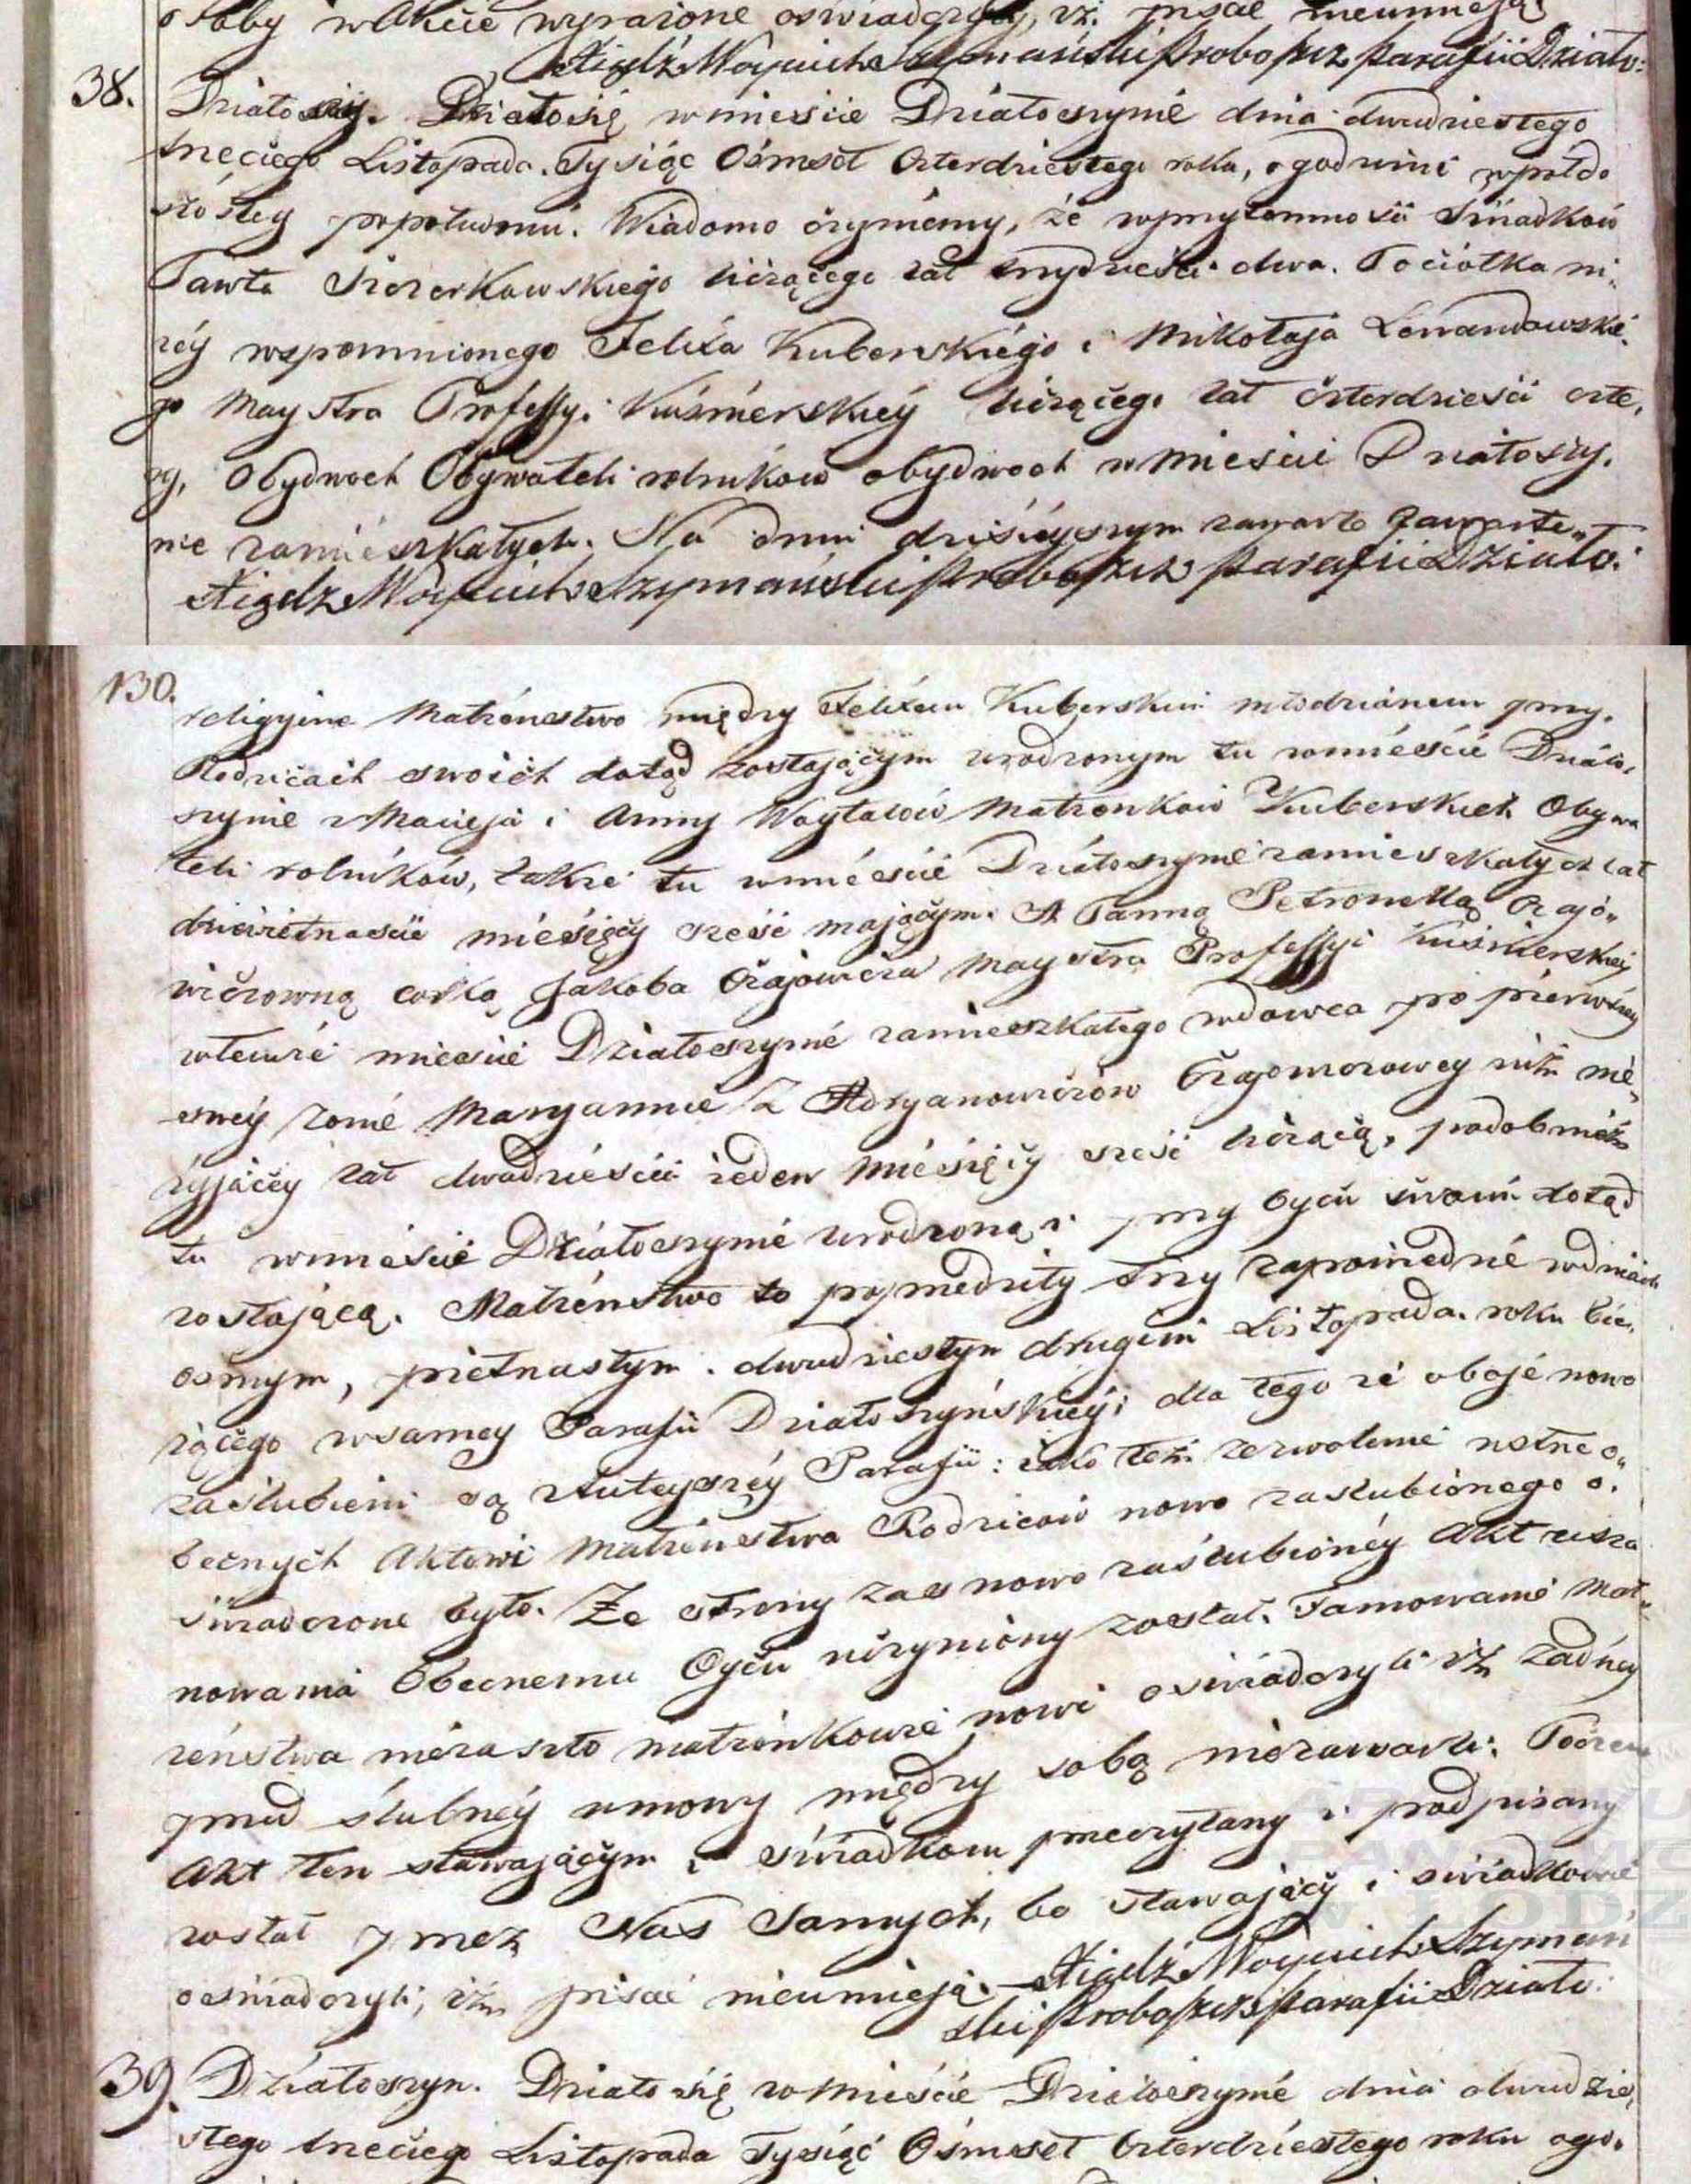 osoby w Akcie wyrażone oświadczyły, iż pisać nieumieją
Xiądz Woyciech Szymański Proboszcz Parafii Działo:
38. Działoszyn. Działo się w mieście Działoszynie dnia dwudziestego
trzeciego Listopada Tysiąc Ośmset Czterdziestego roku, o godzinie wpółdo
szóstey popołudniu. Wiadomo czyniemy, że w przytomności Świadków
Pawła Szczerkowskiego liczącego lat trzydzieści dwa. Pociotka ni,
zéy wspomnionego Felixa Kuberskiégo i Mikołaja Lewandowskie,
go Maystra Professyi Kuśnierskiéy liczącego lat czterdzieści czte,
ry, Obydwoch Obywateli rolników obydwoch w Mieście Działoszy,
nie zamieszkałych. Na dniu dzisieyszym zawarto zawarte
Xiądz Woyciech Szymański Proboszcz Parafii Działo:
130.
religyine Małżeństwo między Felixem Kuberskim młodzianem przy
Rodzicach swoich dotąd zostającym urodzonym tu w mieście Działo,
szynie z Macieja i Anny Woytalów Małżonków Kuberskich Obywa
teli rolników, także tu w mieście Działoszynie zamieszkałych lat
dziewiętnaście miésięcy sześć mającym. A Panną Petronellą Czajo,,
wiczowną corką Jakoba Czajowicza Maystra Professyi Kuśnierskiéy
w temże mieście Działoszynie zamieszkałego wdowca po pierwszey
swéy żonie Maryannie z Adryanowiczów Czajowiczowey już nie,
żyjącéy lat dwadzieścia ieden miésięcy sześć liczącą, podobnież
tu w mieście Działoszynie urodzoną i przy Oycu swoim dotąd
zostającą. Małżeństwo to poprzedziły trzy zapowiedzié w dniach
osmym, piętnastym i dwudziestym drugim Listopada roku bie,
żącego w samey Parafii Działoszyńskiéy; dla tego że oboje nowo
zaślubieni są tuteyszéy Parafii: iako też zezwolenie ustne o,,
becnych Aktowi Małżeństwa Rodziców nowo zaślubionego o,
świadczone było. Ze strony zaś nowo zaślubionéy Akt usza
nowania Obecnemu Oycu uczyniony został. Tamowanie Mał,,
żeństwa niezaszło małżonkowie nowi oświadczyli iż żadnéy
przed ślubnéy umowy między sobą niezawarli. Poczem
Akt ten stawającym i świadkom przeczytany i podpisany
został przez Nas Samych, bo stawający i świadkowie
oświadczyli, iż pisać nieumieją. Xiądz Woyciech Szymań
ski Proboszcz Parafii Działo:
39. Działoszyn. Działo się w Mieście Działoszynie dnia dwudzie,
stego trzeciego Listopada Tysiąc Ośmset Czterdziestego roku o go,